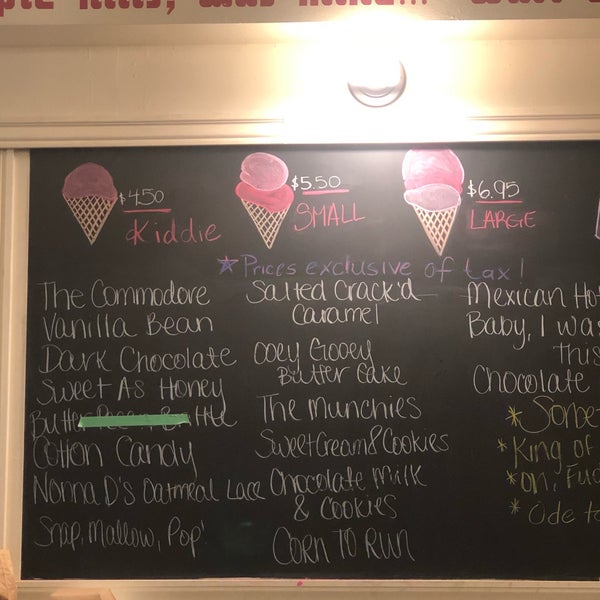 $4.50
Kiddie
$5.50
SMALL
$6.95
LARGE
*Prices exclusive of tax!
The Commodore
Vanilla Bean
Dark Chocolate
Sweet As Honey
Cotton Candy
Nonna D's Oatmeal Lace
Snap, Mallow, Pop!
Salted Crack'd
Caramel
Ooey Gooey
Butter Cake
The Munchies
Sweet Cream & Cookies
Chocolate Milk
& Cookies
CORN TO RUN
Mexican Hot
Baby, I was
This
Chocolate
*Sorbe
*King of
*on, Fud
*Ode to